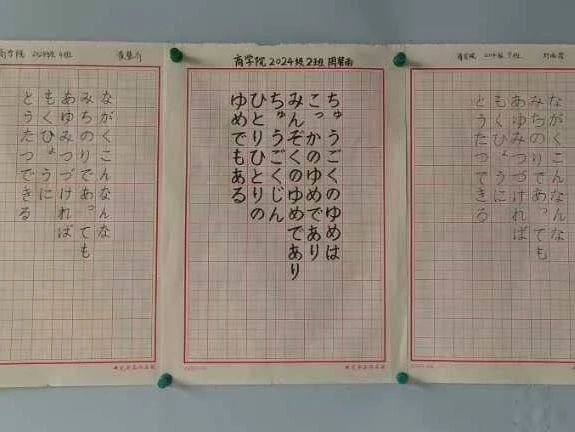 商学院 2024级4班
ながくこんなんな
みちのりであっても
あゆみつづければ
もくひょうに
とうたつできる
商学院2024级2班
ちゅうごくのゆめは
こっかのゆめであり
みんぞくのゆめであり
ちゅうごくじん
ひとりひとりの
ゆめでもある
商学院
ながくこんなんな
みちのりであっても
あゆみつづければ
もくひょうに
とうたつできる